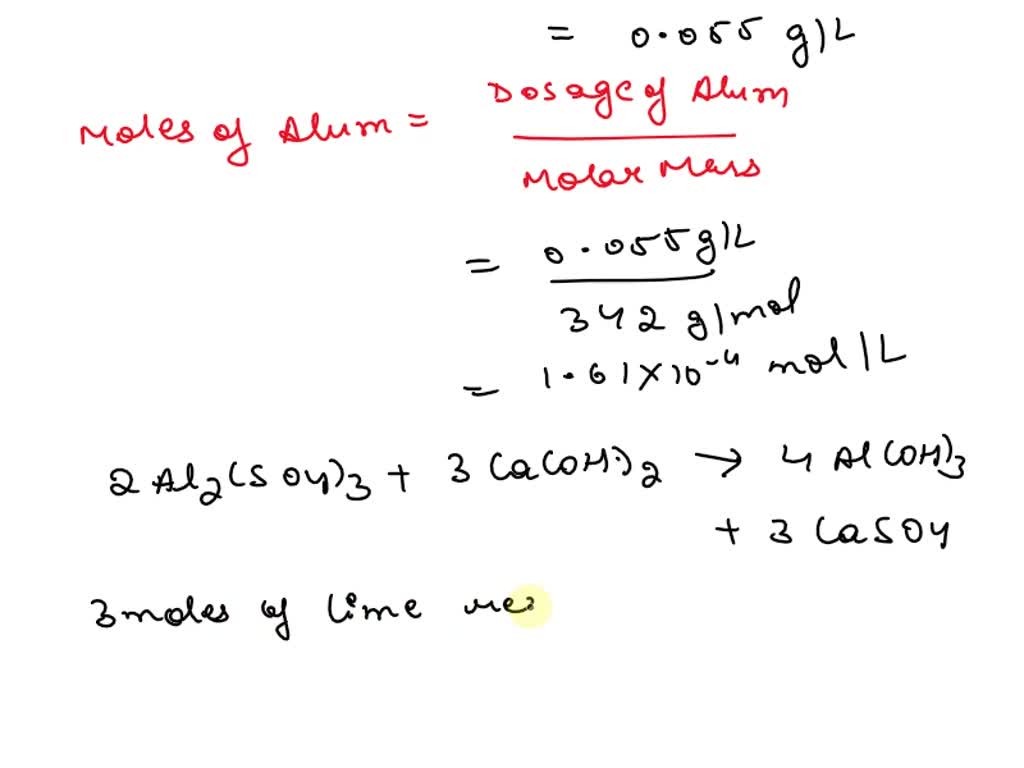 = 0.055 g/L
Moles of Alum = Dosage of Alum
Molar Mass
= 0.055 g/L
342 g/mol
= 1.61×10⁻⁴ mol/L
2 Al₂(SO₄)₃ + 3 Ca(OH)₂ → 4 Al(OH)₃
+ 3 CaSO₄
3 moles of lime